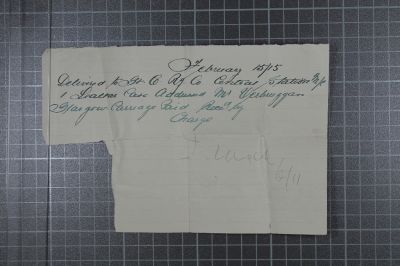 February 15/15
Delivered to G. C Ry Co Central Station
1 Case Addressed Mr Verbruggan
Glasgow Carriage Paid Recd by
Charge
12/11